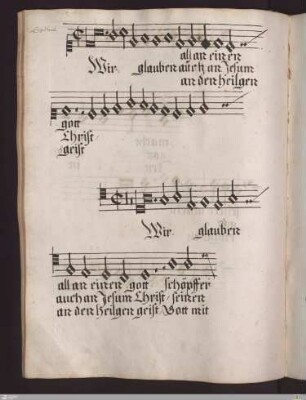 all an einen
Wir glauben auch an Jesum
an den heilgen
gott
Christ
geist
Wir glauben
all an einen gott schöpffer
auch an Jesum Christ / seinen
an den heilgen geist Gott mit